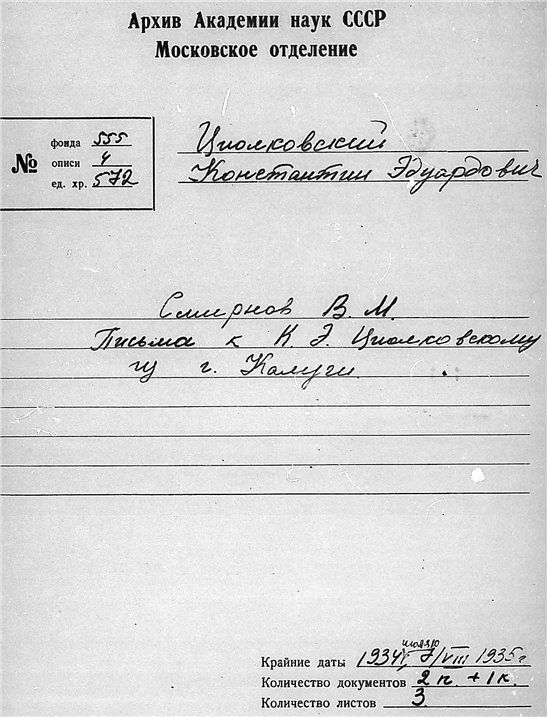 Архив Академии наук СССР
Московское отделение
№
фонда 555
описи 4
ед. хр. 572
Циолковский
Константин Эдуардович
Смирнов В. М.
Письма к К. Э. Циолковскому
из г. Калуги.
Крайние даты 1934, 7/VIII 1935г
Количество документов 2 п. + 1 к.
Количество листов 3